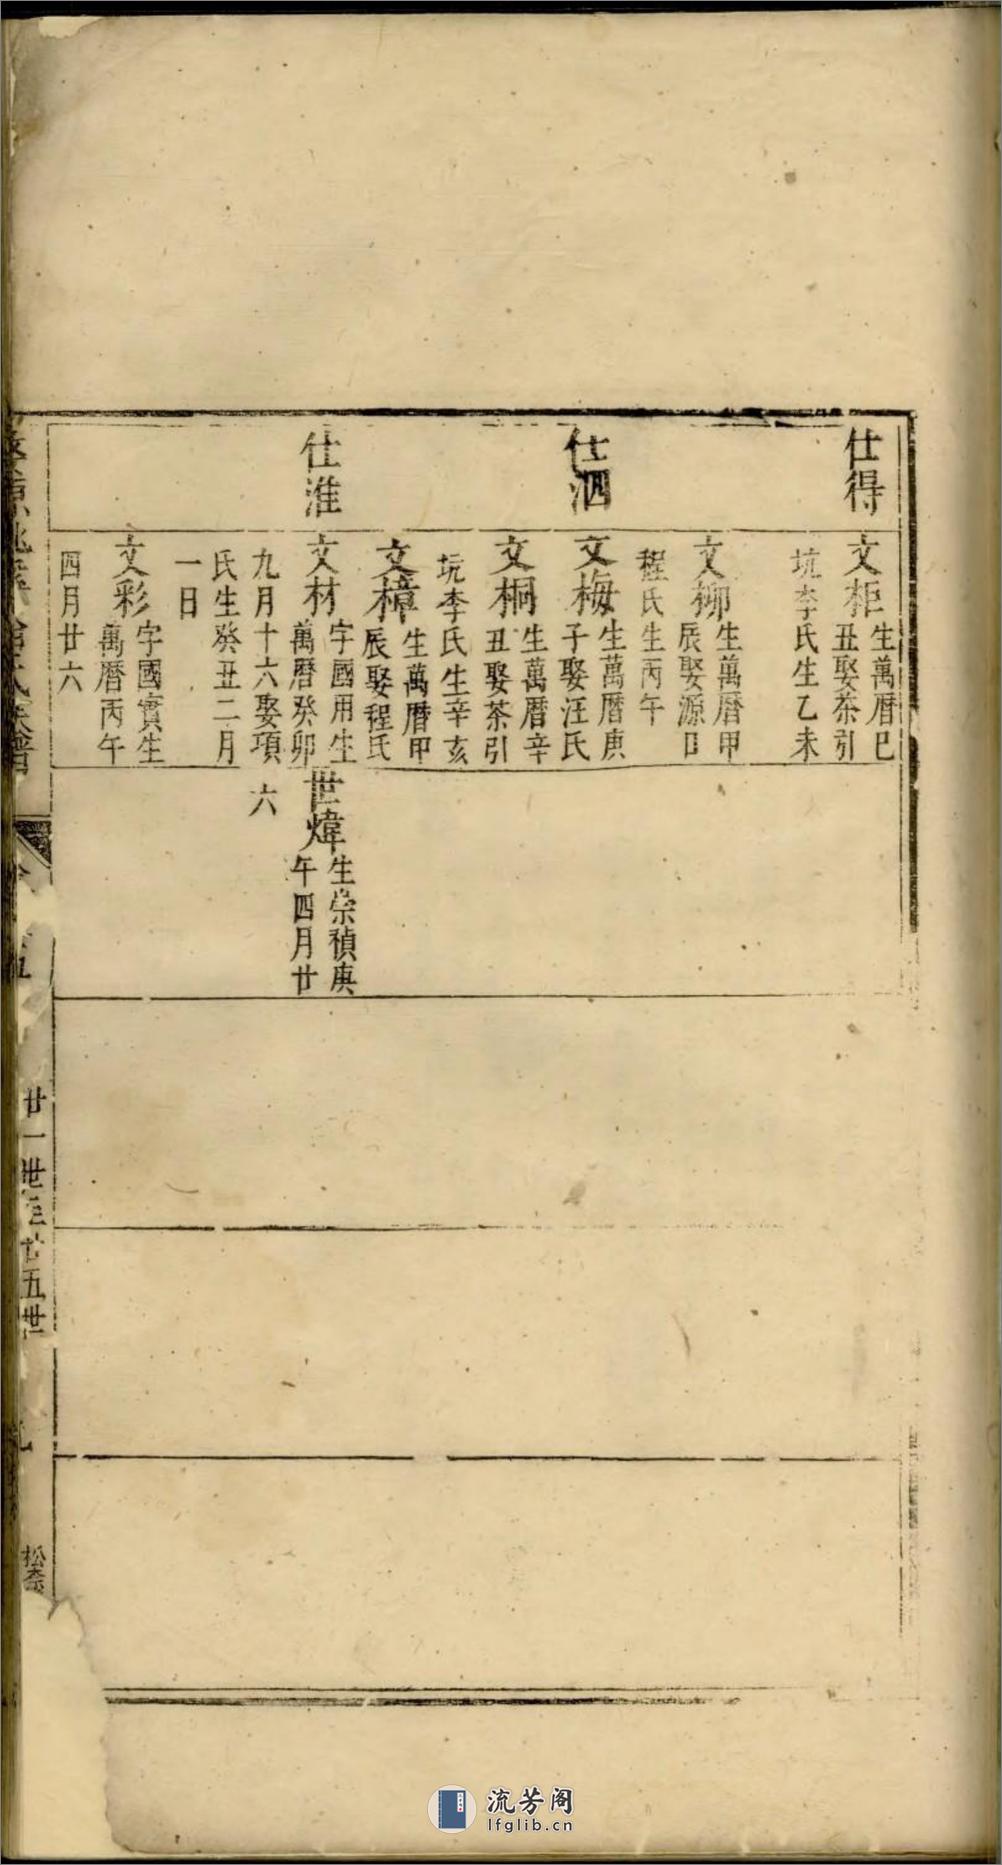 仕得
文柜
生萬曆巳
丑娶茶引
坑李氏生乙未
文柳
生萬曆甲
辰娶源口
程氏生丙午
仕泗
文梅
生萬曆庚
子娶汪氏
文桐
生萬曆辛
丑娶茶引
坑李氏生辛亥
文樟
生萬曆甲
辰娶程氏
仕淮
文材
字國用生
萬曆癸卯
九月十六娶項
氏生癸丑二月
一日
世煒
生崇禎庚
午四月廿
六
文彩
字國實生
萬曆丙午
四月廿六
廿一世至廿五世
流芳阁
lfglib.cn